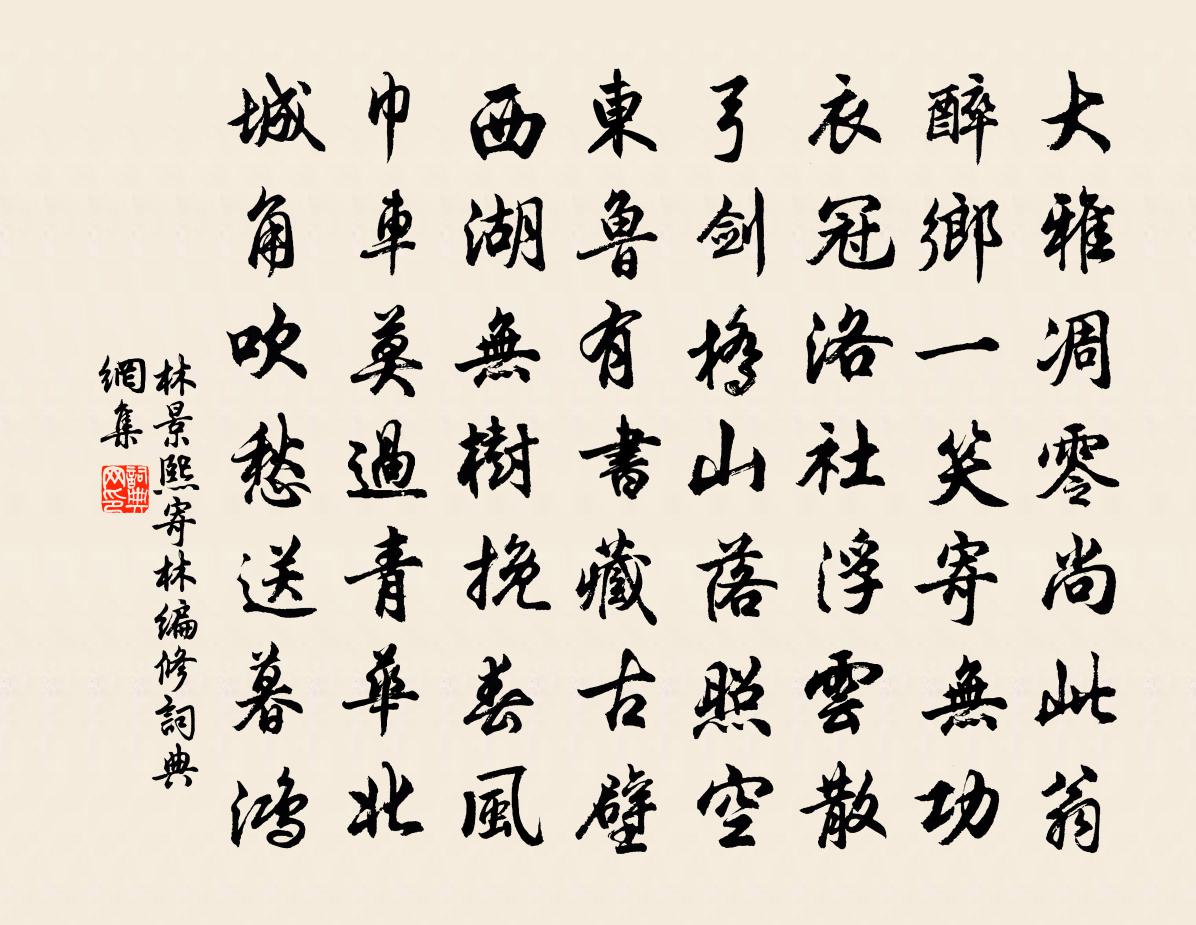 大雅凋零尚此翁
醉鄉一笑寄無功
衣冠洛社浮雲散
弓劍橋山落照空
東魯有書藏古壁
西湖無樹挽春風
巾車莫過青華北
城角吹愁送暮鴻
林景熙寄林編修詞典
網集
詞典
网印